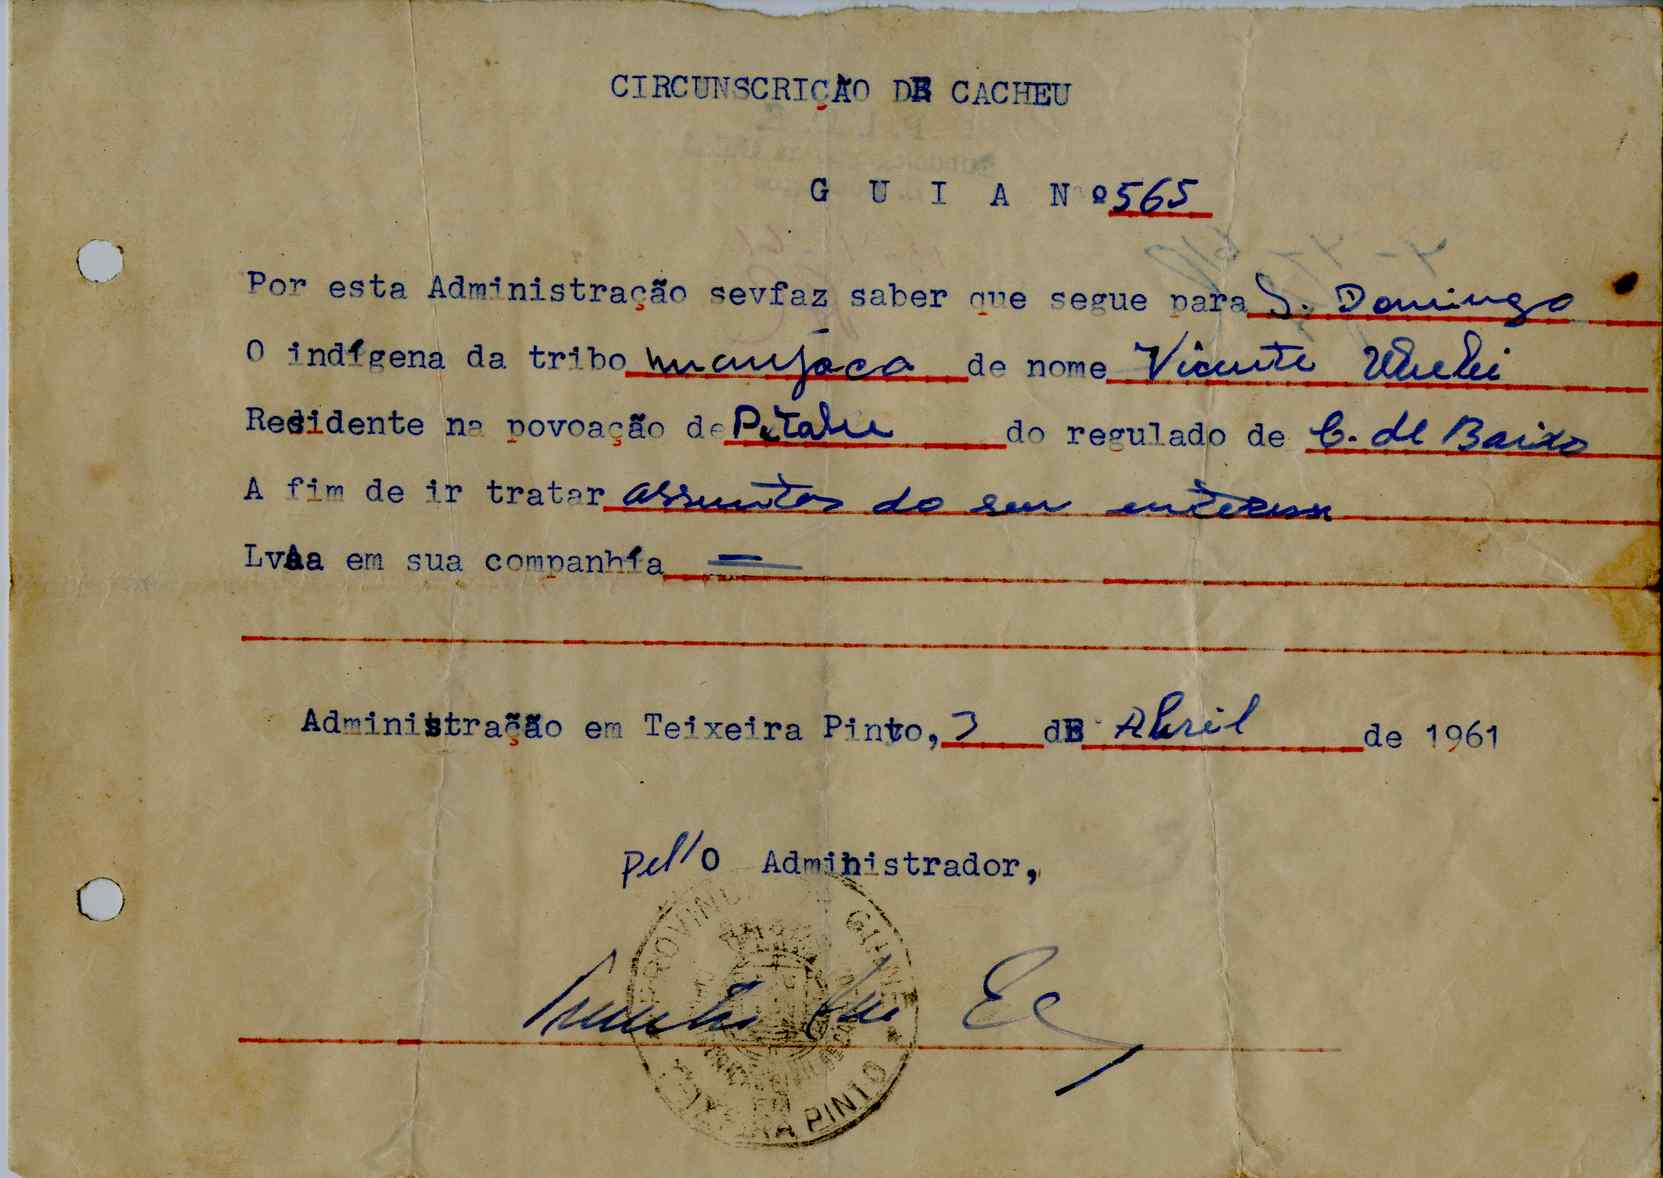 CIRCUNSCRIÇÃO DE CACHEU
G U I A Nº 565
Por esta Administração sevfaz saber que segue para S. Domingo
O indígena da tribo manjaca de nome Vicente
Residente na povoação de do regulado de C. de Baixo
A fim de ir tratar assuntos do seu enteresse
Lvaa em sua companhía =
Administração em Teixeira Pinto, 3 dE Abril de 1961
pel'O Administrador,
PROVINCIA GUINÉ
TEIXEIRA PINTO